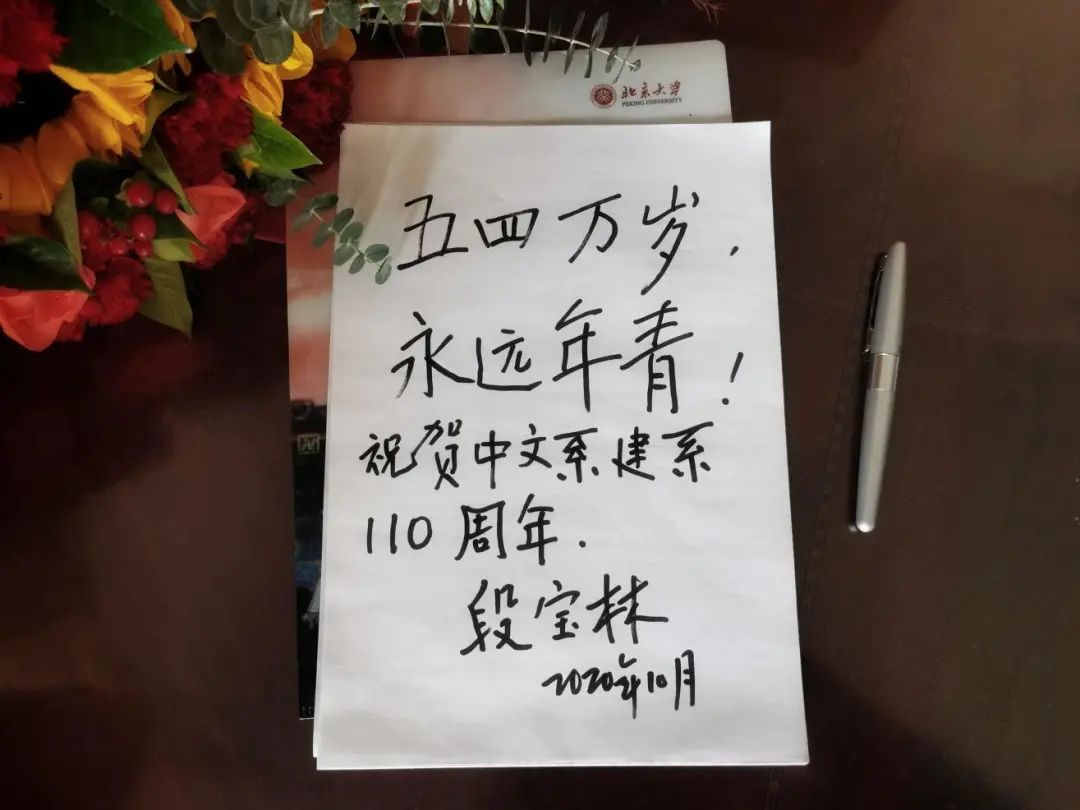 北京大学
PEKING UNIVERSITY
五四万岁,
永远年青!
祝贺中文系建系
110周年.
段宝林
2020年10月